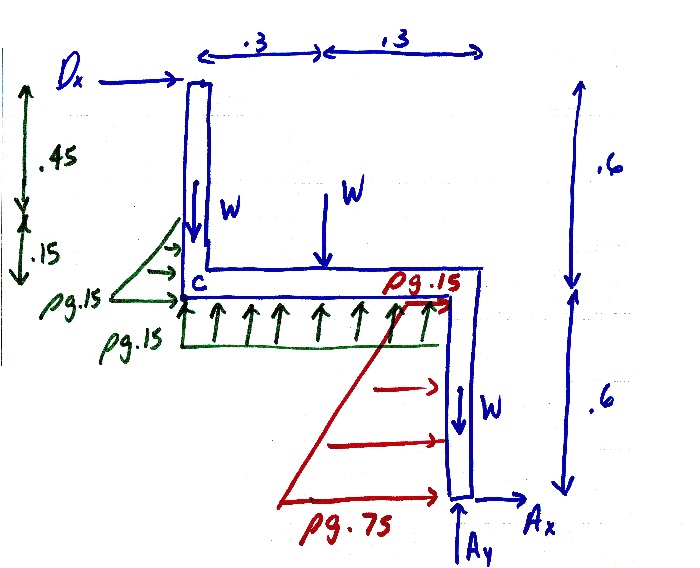 .3
.3
Dx
.45
.6
W
W
.15
C
ρg.15
ρg.15
ρg.15
W
.6
ρg.75
Ax
Ay